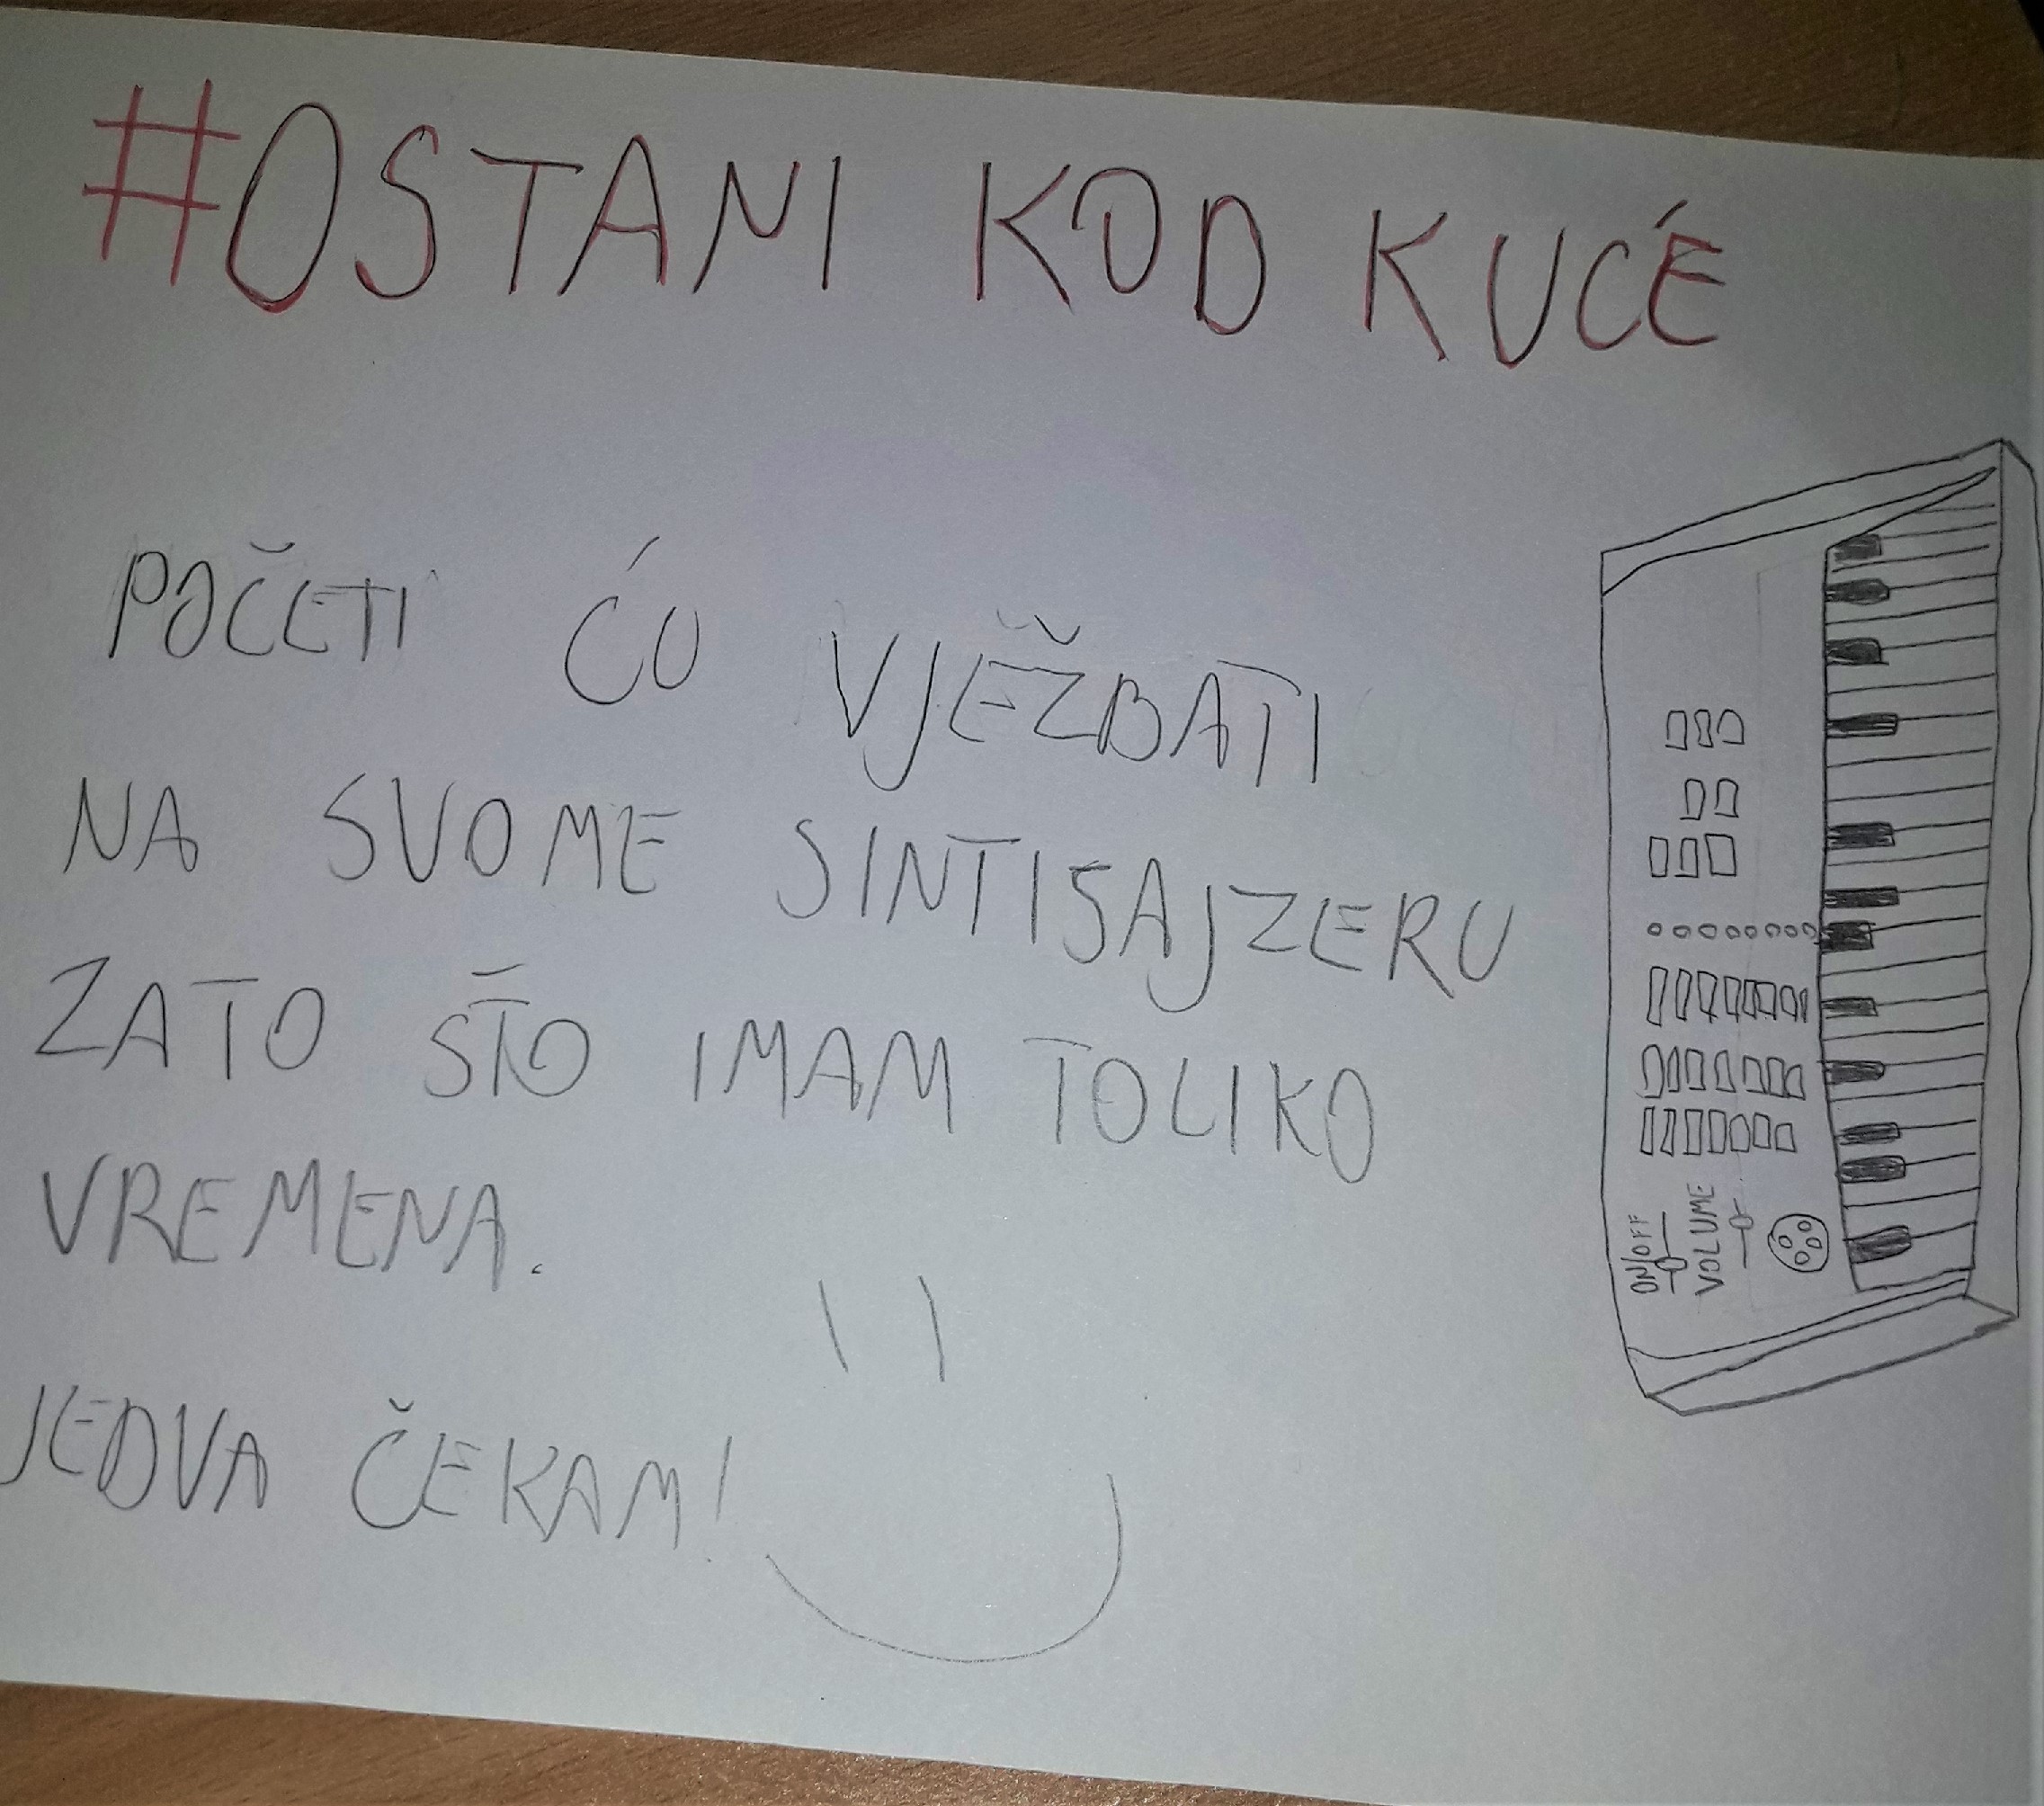 #OSTANI KOD KUĆE
POČETI ĆU VJEŽBATI
NA SVOME SINTISAJZERU
ZATO ŠTO IMAM TOLIKO
VREMENA.
JEDVA ČEKAM!
ON/OFF
VOLUME